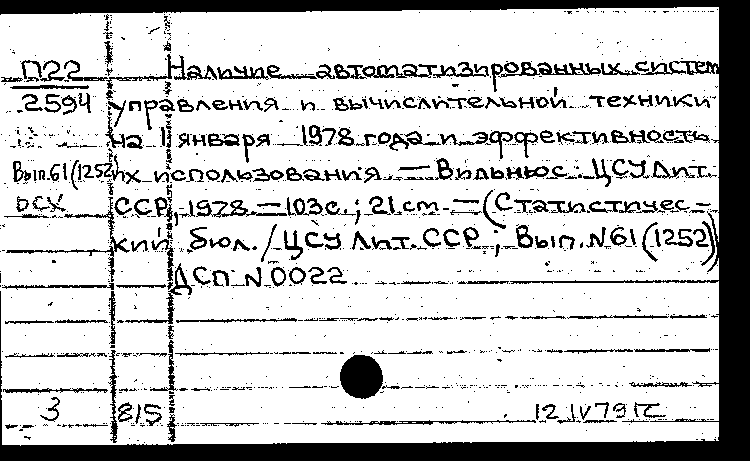 П22 Наличие автоматизированных систем
2594 управления и вычислительной техники
на 1 января 1978 года и эффективность
Вып.61(1252) их использования — Вильнюс: ЦСУ Лит.
ОСХ ССР, 1978. — 103с.; 21 cm. — (Статистичес-
кий бюл. / ЦСУ Лит. ССР; Вып. N61 (1252))
ДСП N 0022
3 815 12 IV 79